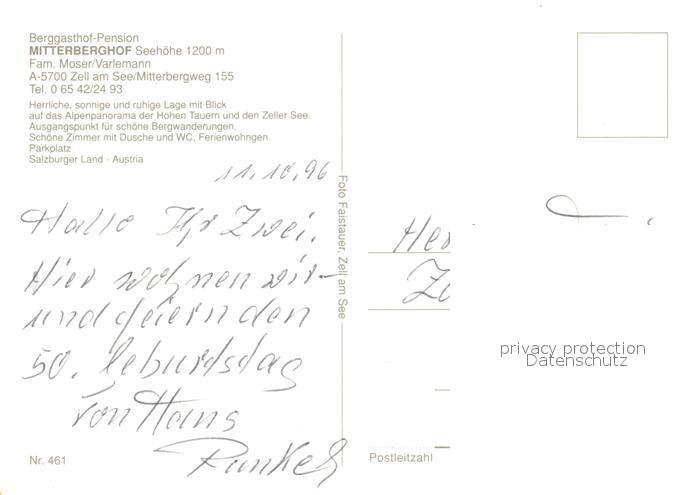 Berggasthof-Pension
MITTERBERGHOF Seehöhe 1200 m
Fam. Moser/Varlemann
A-5700 Zell am See/Mitterbergweg 155
Tel. 0 65 42/24 93
Herrliche, sonnige und ruhige Lage mit Blick
auf das Alpenpanorama der Hohen Tauern und den Zeller See.
Ausgangspunkt für schöne Bergwanderungen.
Schöne Zimmer mit Dusche und WC, Ferienwohngen.
Parkplatz
Salzburger Land - Austria
11.10.96
Hallo Ihr Zwei.
Hier wohnen wir
und feiern den
50. Geburtstag
von Hans
Runkel
Nr. 461
Foto Faistauer, Zell am See
Her
privacy protection
Datenschutz
Postleitzahl